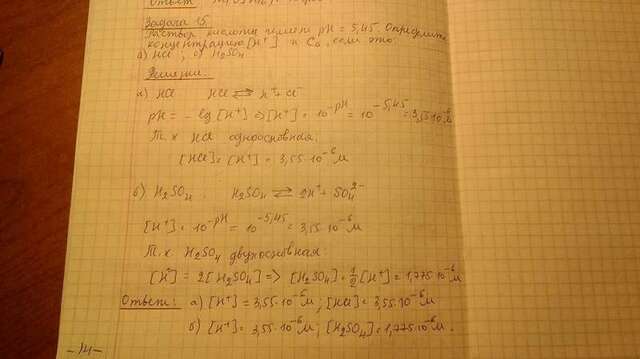 Ответ
Задача 15.
Раствор кислоты имеет pH = 5,45. Определить
концентрацию [H⁺] и C₀, если это:
а) HCl ; б) H₂SO₄
Решение.
а) HCl HCl ⇄ H⁺ + Cl⁻
pH = - lg [H⁺] => [H⁺] = 10⁻ᵖᴴ = 10⁻⁵,⁴⁵ = 3,55·10⁻⁶ М
Т.к HCl одноосновная:
[HCl] = [H⁺] = 3,55·10⁻⁶ М
б) H₂SO₄ H₂SO₄ ⇄ 2H⁺ + SO₄²⁻
[H⁺] = 10⁻ᵖᴴ = 10⁻⁵,⁴⁵ = 3,55·10⁻⁶ М
Т.к H₂SO₄ двухосновная:
[H⁺] = 2[H₂SO₄] => [H₂SO₄] = 1/2 [H⁺] = 1,775·10⁻⁶ М
Ответ: а) [H⁺] = 3,55·10⁻⁶ М ; [HCl] = 3,55·10⁻⁶ М
б) [H⁺] = 3,55·10⁻⁶ М ; [H₂SO₄] = 1,775·10⁻⁶ М.
-14-